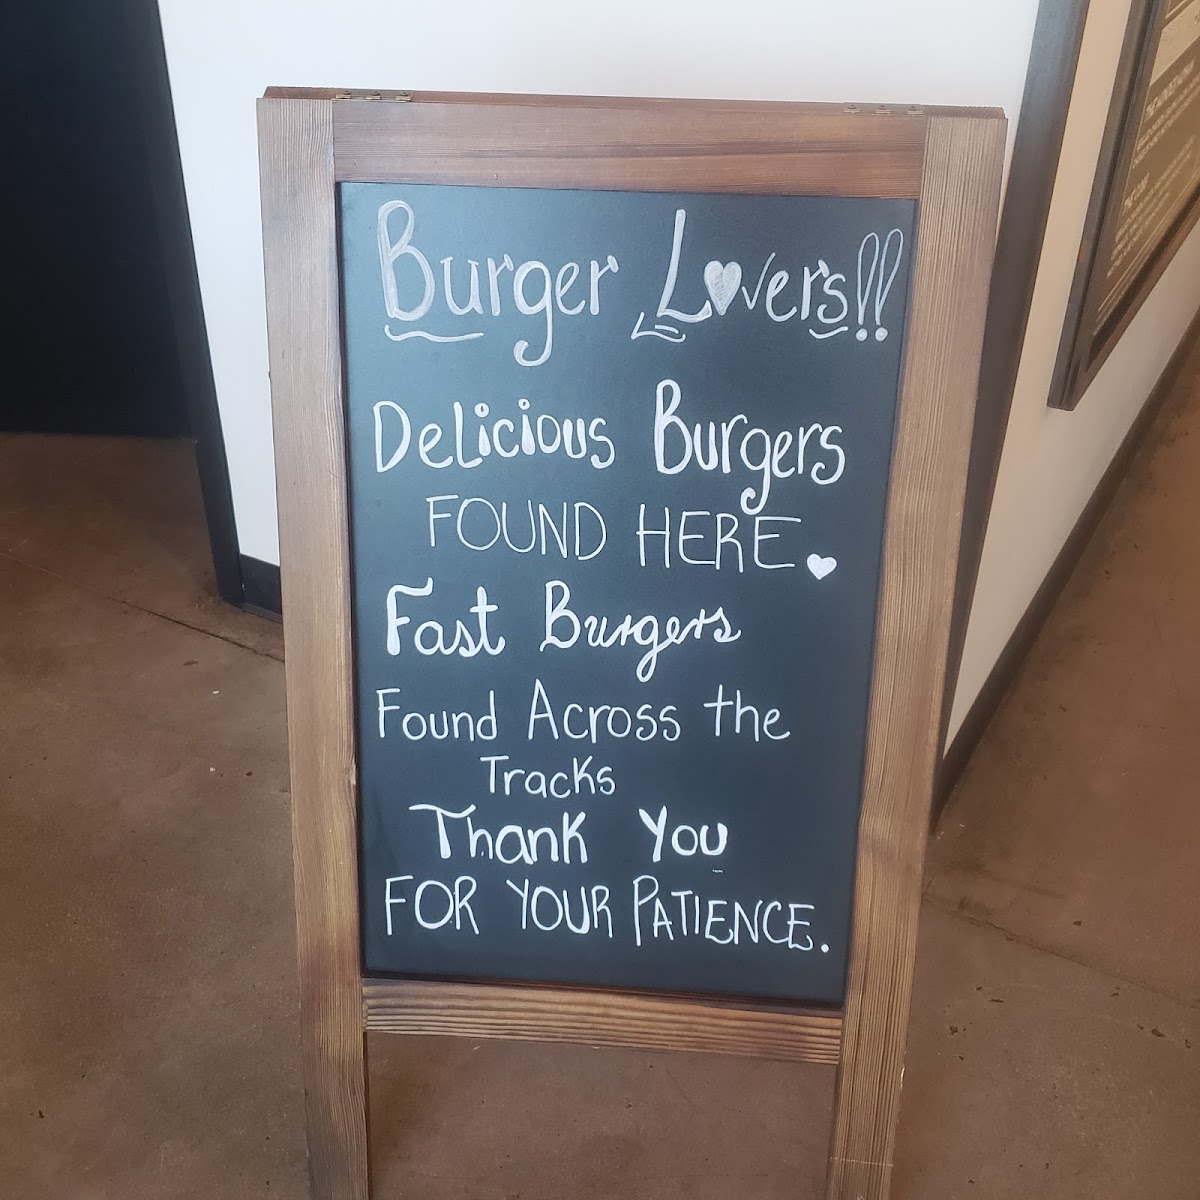 Burger Lovers!!
Delicious Burgers
FOUND HERE.
Fast Burgers
Found Across the
Tracks
Thank You
FOR YOUR PATIENCE.